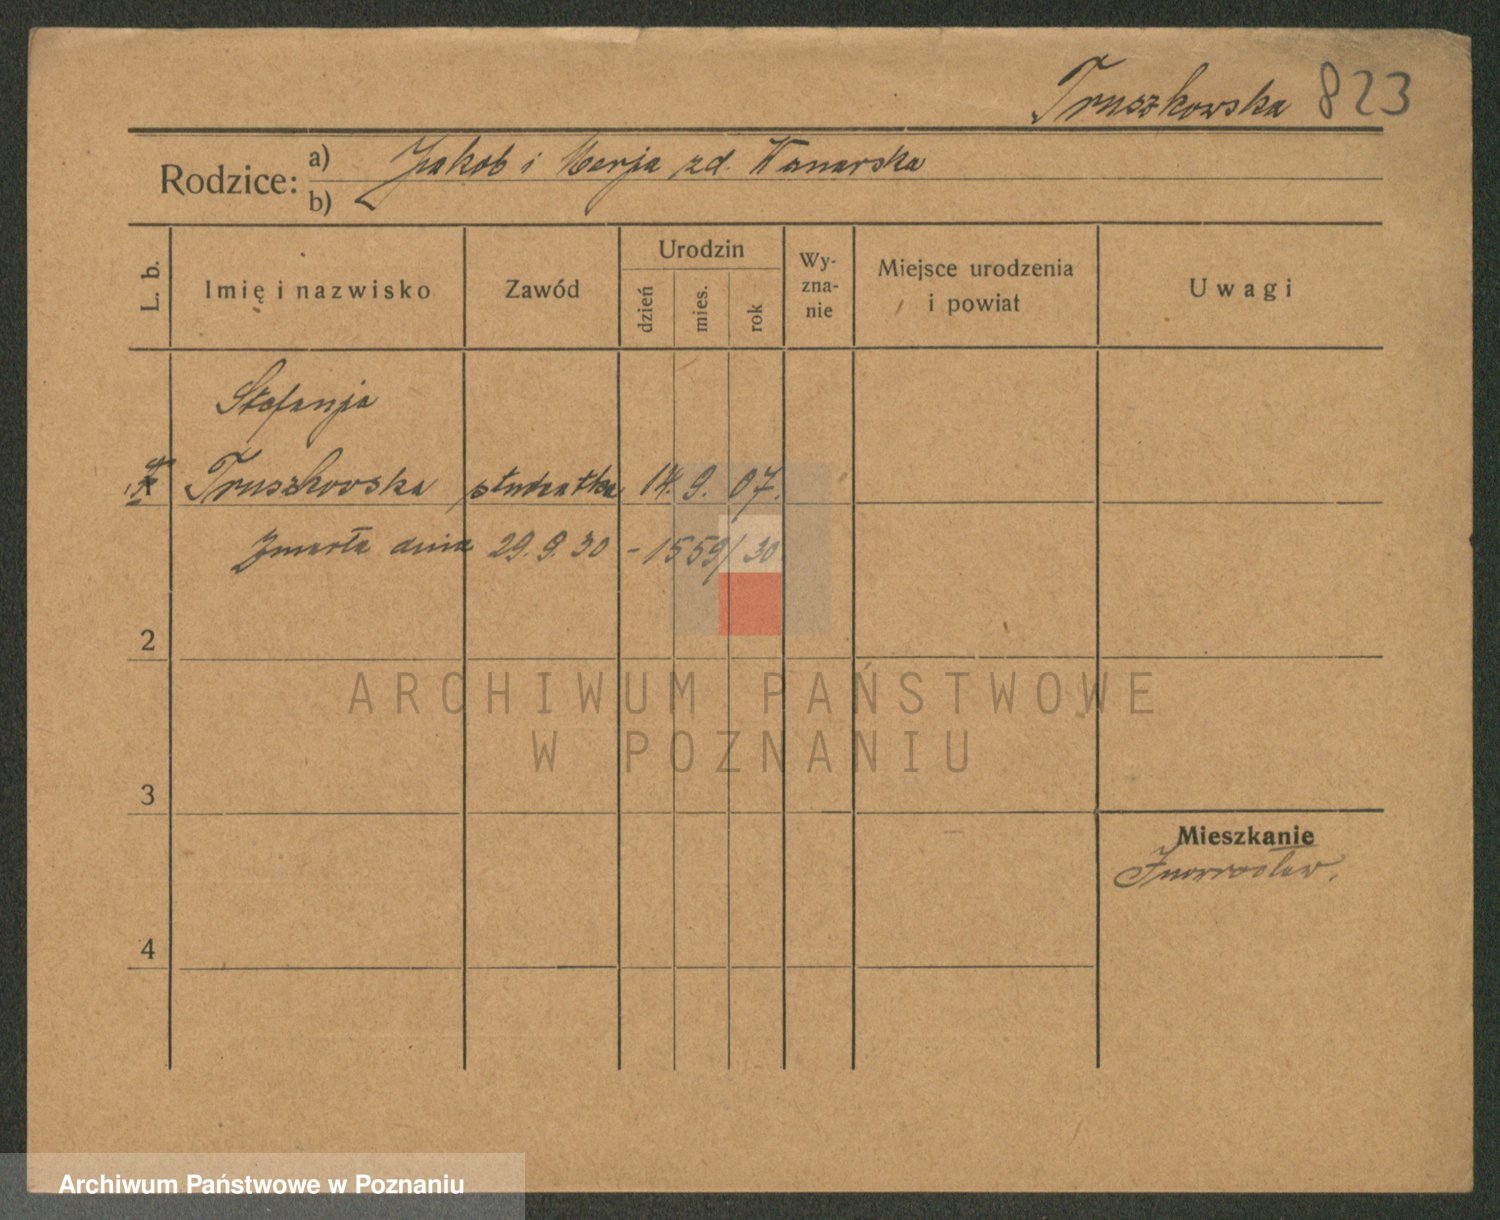 Truszkowska 823
Rodzice: a) Jakob i Marja zd. Kanarska
b)
L. b.
Imię i nazwisko
Zawód
Urodzin
dzień
mies.
rok
Wy-
zna-
nie
Miejsce urodzenia
i powiat
Uwagi
Stefanja
Truszkowska studentka 14. 9. 07.
Zmarła dnia 29. 9. 30 - 1559/30
2
3
4
Mieszkanie
Inowrocław.
ARCHIWUM PAŃSTWOWE
W POZNANIU
Archiwum Państwowe w Poznaniu